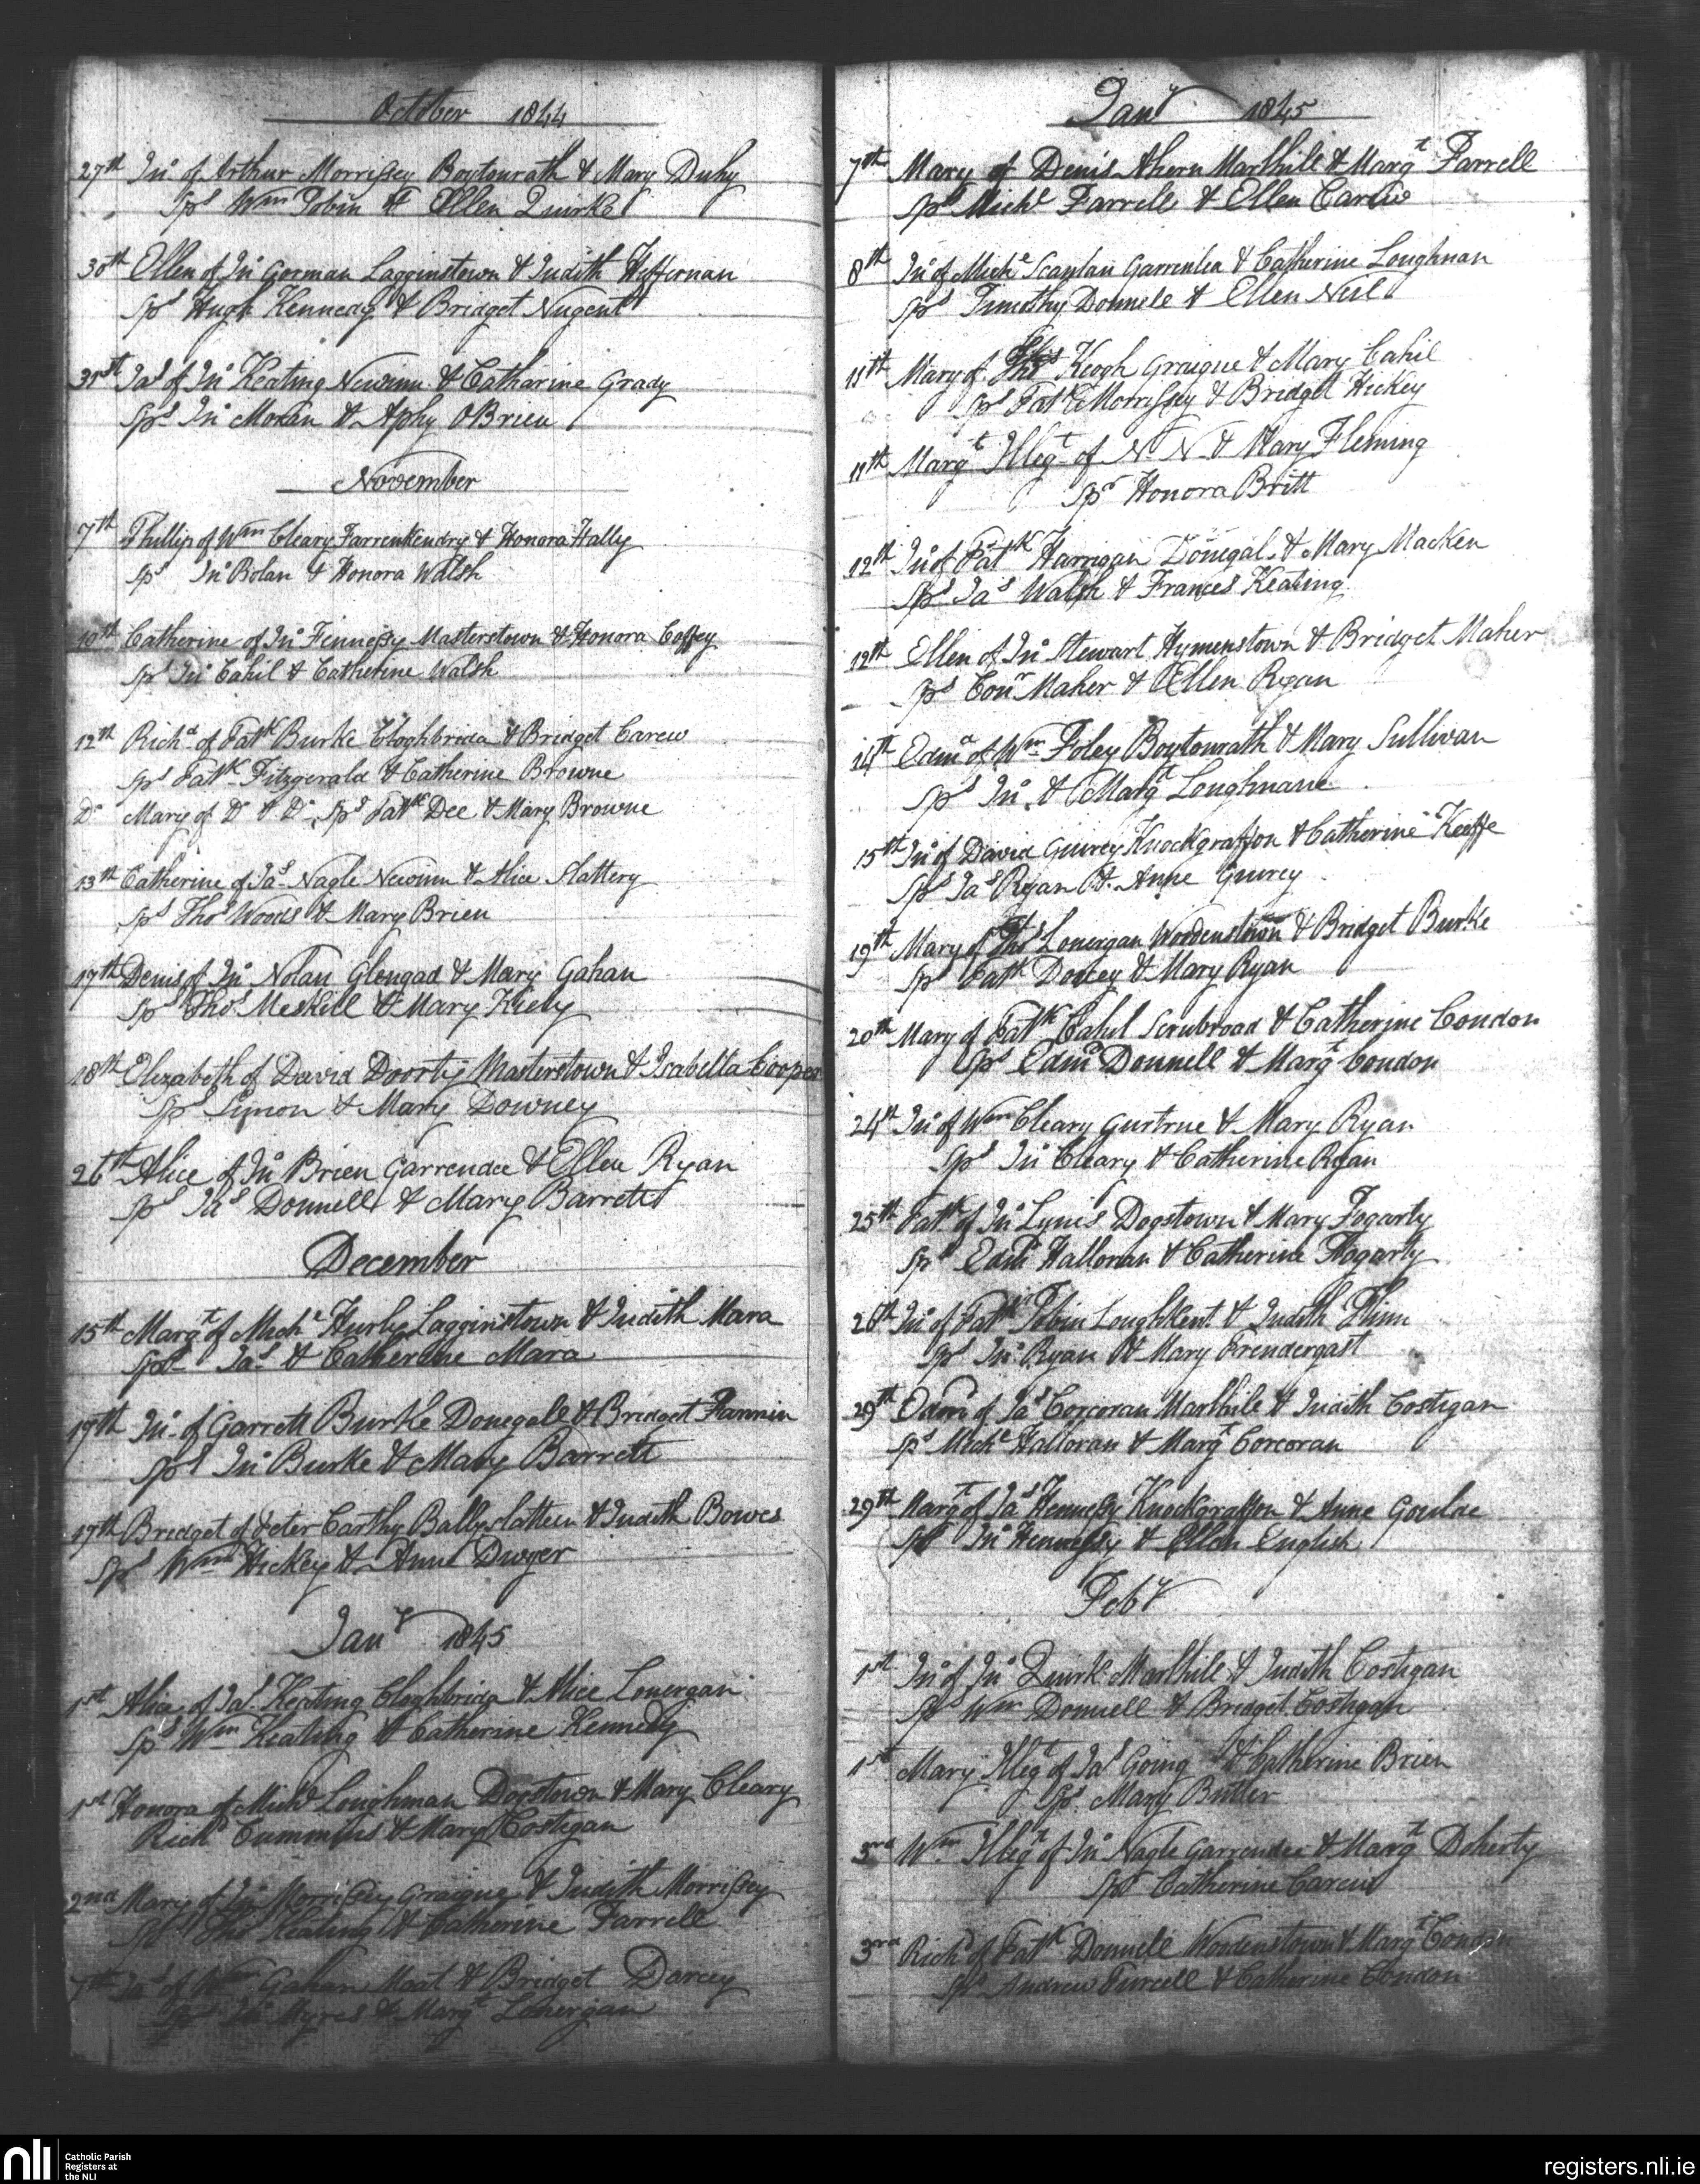 October 1844
27th Jno of Arthur Morrissey Boytonrath & Mary Duhy
Sps Wm Tobin & Ellen Quirke
30th Ellen of Jno Gorman Lagginstown & Judith Heffernan
Sps Hugh Kennedy & Bridget Nugent
31st Jas of Jno Keating Newinn & Catharine Grady
Sps Jno Moran & Aphy OBrien
November
7th Phillip of Wm Cleary Farrenkendry & Honora Hally
Sps Jno Bolan & Honora Walsh
10th Catherine of Jno Finnessy Masterstown & Honora Coffey
Sps Jno Cahil & Catherine Walsh
12th Richd of Patk Burke Cloghbrida & Bridget Carew
Sps Patk Fitzgerald & Catherine Browne
Do Mary of Do & Do Sps Patk Dee & Mary Browne
13th Catherine of Jas Nagle Newinn & Alice Slattery
Sps Thos Woods & Mary Brien
17th Denis of Jno Nolan Glengad & Mary Gahan
Sps Thos Meskill & Mary Kiely
18th Elizabeth of David Doorty Masterstown & Isabella Cooper
Sps Simon & Mary Downey
26th Alice of Jno Brien Garrendee & Ellen Ryan
Sps Jas Donnell & Mary Barrett
December
15th Margt of Michl Hurly Lagginstown & Judith Mara
Sps Jas & Catherine Mara
17th Jno of Garrett Burke Donegall & Bridget Fannin
Sps Jno Burke & Mary Barrett
17th Bridget of Peter Carthy Ballyslatteen & Judith Bowes
Sps Wm Hickey & Anne Dwyer
Jany 1845
1st Alice of Jas Keating Cloghbrida & Alice Lonergan
Sps Wm Keating & Catherine Kennedy
1st Honora of Michl Loughman Dogstown & Mary Cleary
Richd Cummins & Mary Costigan
2nd Mary of Jno Morrissey Graigue & Judith Morrissey
Sps Thos Keating & Catherine Farrell
7th Jas of Wm Gahan Moat & Bridget Darcey
Sps Jno Myres & Margt Lonergan
Jany 1845
7th Mary of Denis Ahern Marlhill & Margt Farrell
Sps Michl Farrell & Ellen Carew
8th Jno of Michl Scanlan Garrenlea & Catherine Loughnan
Sps Timothy Donnell & Ellen Neil
11th Mary of Thos Keogh Graigue & Mary Cahil
Sps Patk Morrissey & Bridget Hickey
11th Margt Illegt of N. N. & Mary Fleming
Spr Honora Britt
12th Jno of Patk Harrigan Donegal & Mary Macken
Sps Jas Walsh & Frances Keating
12th Ellen of Jno Stewart Hymenstown & Bridget Maher
Sps Conr Maher & Ellen Ryan
14th Edmd of Wm Foley Boytonrath & Mary Sullivan
Sps Jno & Margt Loughnane
15th Jno of David Guirey Knockgraffon & Catherine Keeffe
Sps Jas Ryan & Anne Guirey
19th Mary of Thos Lonergan Woodenstown & Bridget Burke
Sps Patk Dorcey & Mary Ryan
20th Mary of Patk Cahil Scrubroad & Catherine Condon
Sps Edmd Donnell & Margt Condon
24th Jno of Wm Cleary Gurtrue & Mary Ryan
Sps Jno Cleary & Catherine Ryan
25th Patk of Jno Lynes Dogstown & Mary Fogarty
Sps Edmd Halloran & Catherine Fogarty
26th Jno of Patk Tobin Loughkent & Judith Flinn
Sps Jno Ryan & Mary Prendergast
29th Edmd of Jas Corcoran Marlhill & Judith Costigan
Sps Michl Halloran & Margt Corcoran
29th Margt of Jas Hennessy Knockgraffon & Anne Goulde
Sps Jno Hennessy & Ellen English
Feby
1st Jno of Jno Quirk Marlhill & Judith Costigan
Sps Wm Donnell & Bridget Costigan
1st Mary Illegt of Jas Going & Catherine Brien
Sps Mary Butler
3rd Wm Illegt of Jno Nagle Garrendee & Margt Doherty
Sps Catherine Carew
3rd Richd of Patk Donnell Woodenstown & Margt Condon
Sps Andrew Purcell & Catherine Condon
nli
Catholic Parish
Registers at
the NLI
registers.nli.ie